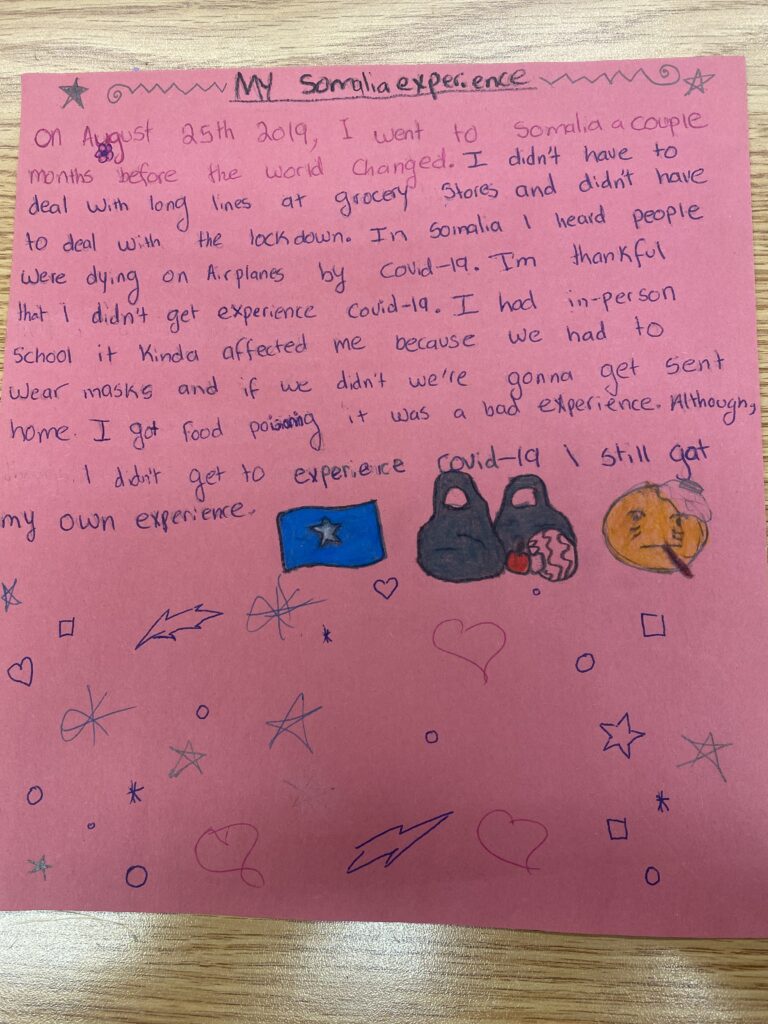 MY Somalia experience
On August 25th 2019, I went to Somalia a couple
months before the world changed. I didn't have to
deal with long lines at grocery stores and didn't have
to deal with the lockdown. In Somalia I heard people
were dying on Airplanes by Covid-19. I'm thankful
that I didn't get experience Covid-19. I had in-person
School it Kinda affected me because we had to
wear masks and if we didn't we're gonna get sent
home. I got food poisoning it was a bad experience. Although,
I didn't get to experience covid-19 I still got
my own experience.